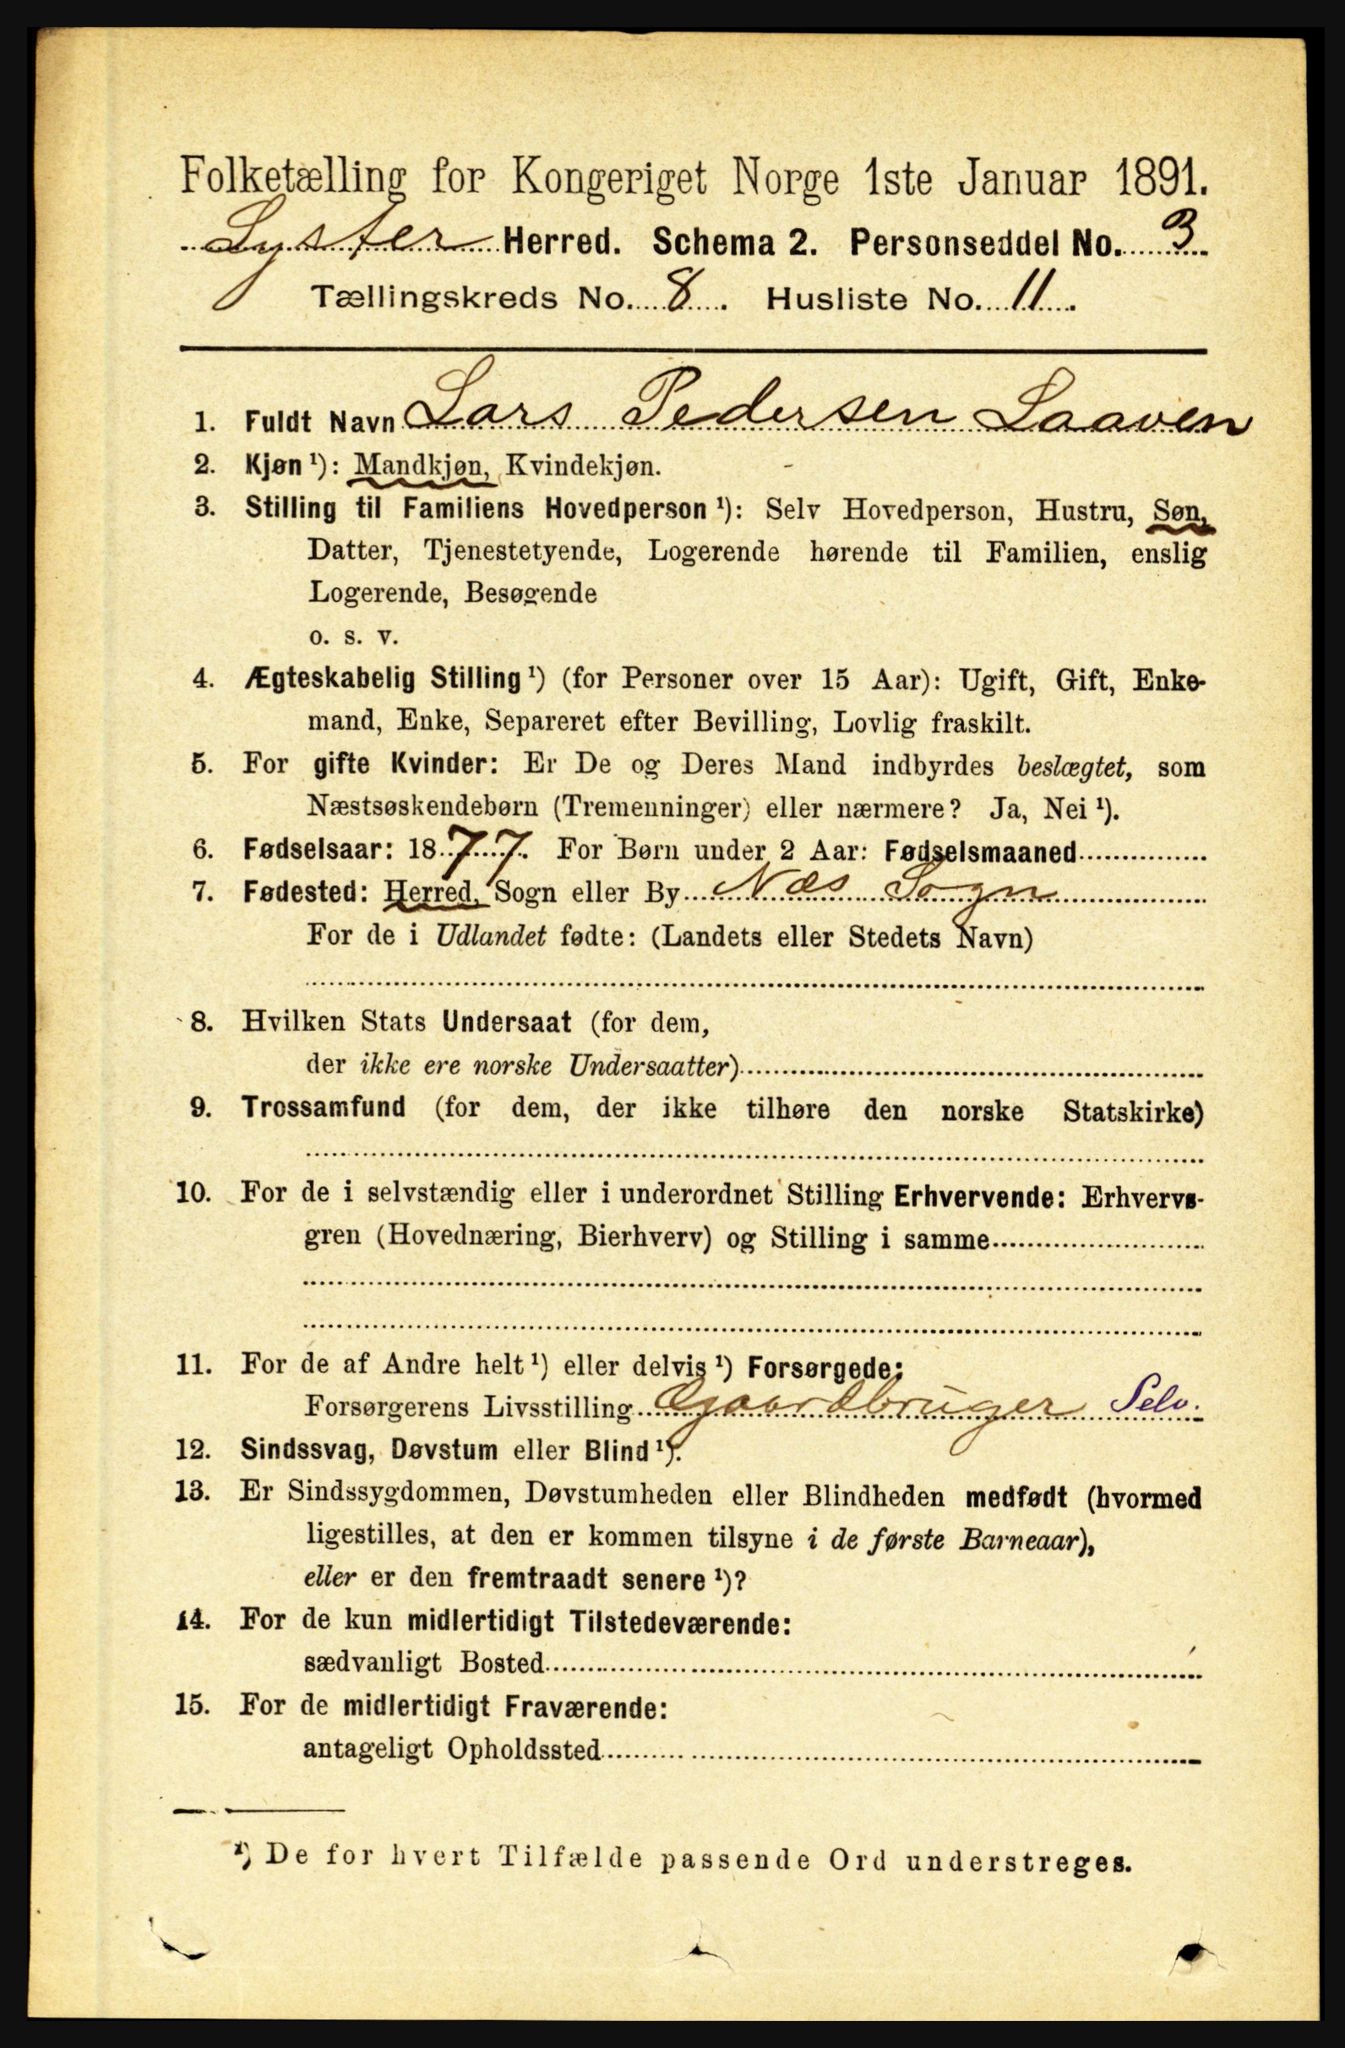 Folketælling for Kongeriget Norge 1ste Januar 1891.
Lyster Herred. Schema 2. Personseddel No. 3
Tællingskreds No. 8. Husliste No. 11.
1. Fuldt Navn Lars Pedersen Laaven
2. Kjøn ¹): Mandkjøn, Kvindekjøn.
3. Stilling til Familiens Hovedperson ¹): Selv Hovedperson, Hustru, Søn,
Datter, Tjenestetyende, Logerende hørende til Familien, enslig
Logerende, Besøgende
o. s. v.
4. Ægteskabelig Stilling ¹) (for Personer over 15 Aar): Ugift, Gift, Enke-
mand, Enke, Separeret efter Bevilling, Lovlig fraskilt.
5. For gifte Kvinder: Er De og Deres Mand indbyrdes beslægtet, som
Næstsøskendebørn (Tremenninger) eller nærmere? Ja, Nei ¹).
6. Fødselsaar: 1877. For Børn under 2 Aar: Fødselsmaaned
7. Fødested: Herred, Sogn eller By Næs Sogn
For de i Udlandet fødte: (Landets eller Stedets Navn)
8. Hvilken Stats Undersaat (for dem,
der ikke ere norske Undersaatter)
9. Trossamfund (for dem, der ikke tilhøre den norske Statskirke)
10. For de i selvstændig eller i underordnet Stilling Erhvervende: Erhvervs-
gren (Hovednæring, Bierhverv) og Stilling i samme
11. For de af Andre helt ¹) eller delvis ¹) Forsørgede:
Forsørgerens Livsstilling Gaardbruger Selv.
12. Sindssvag, Døvstum eller Blind ¹).
13. Er Sindssygdommen, Døvstumheden eller Blindheden medfødt (hvormed
ligestilles, at den er kommen tilsyne i de første Barneaar),
eller er den fremtraadt senere ¹)?
14. For de kun midlertidigt Tilstedeværende:
sædvanligt Bosted
15. For de midlertidigt Fraværende:
antageligt Opholdssted
¹) De for hvert Tilfælde passende Ord understreges.